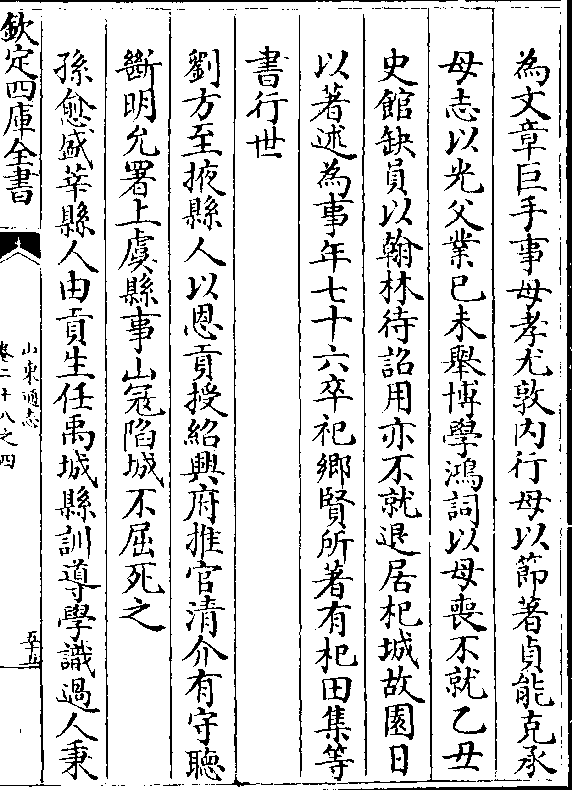 為文章巨手事母孝尤敦内行母以節著貞能克承
母志以光父業已未舉博學鴻詞以母喪不就乙丑
史館缺員以翰林待詔用亦不就退居杞城故園日
以著述為事年七十六卒祀鄉賢所著有杞田集等
書行世
劉方至掖縣人以恩貢授紹興府推官清介有守聽
斷明允署上虞縣事山冦陷城不屈死之
孫愈盛莘縣人由貢生任禹城縣訓導學識過人秉
欽定四庫全書
山東通志
卷二十八之四
五十五